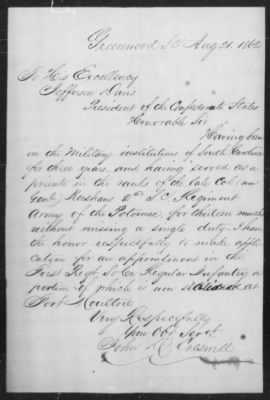 Greenwood SC Aug 21. 1862
To His Excellency
Jefferson Davis
President of the Confederate States
Honorable Sir
Having been
in the Military institutions of South Carolina
for three years, and having served as a
private in the ranks of the late Col (now
Genl) Kershaws 2nd S.C. Regiment
Army of the Potomac, for thirteen months
without missing a single duty. I have
the honor respectfully to make appli-
cation for an appointment in the
First Regt. So Ca Regular Infantry a
portion of which is now stationed at
Fort Moultrie
Very Respectfully
Your Obt Servt
John